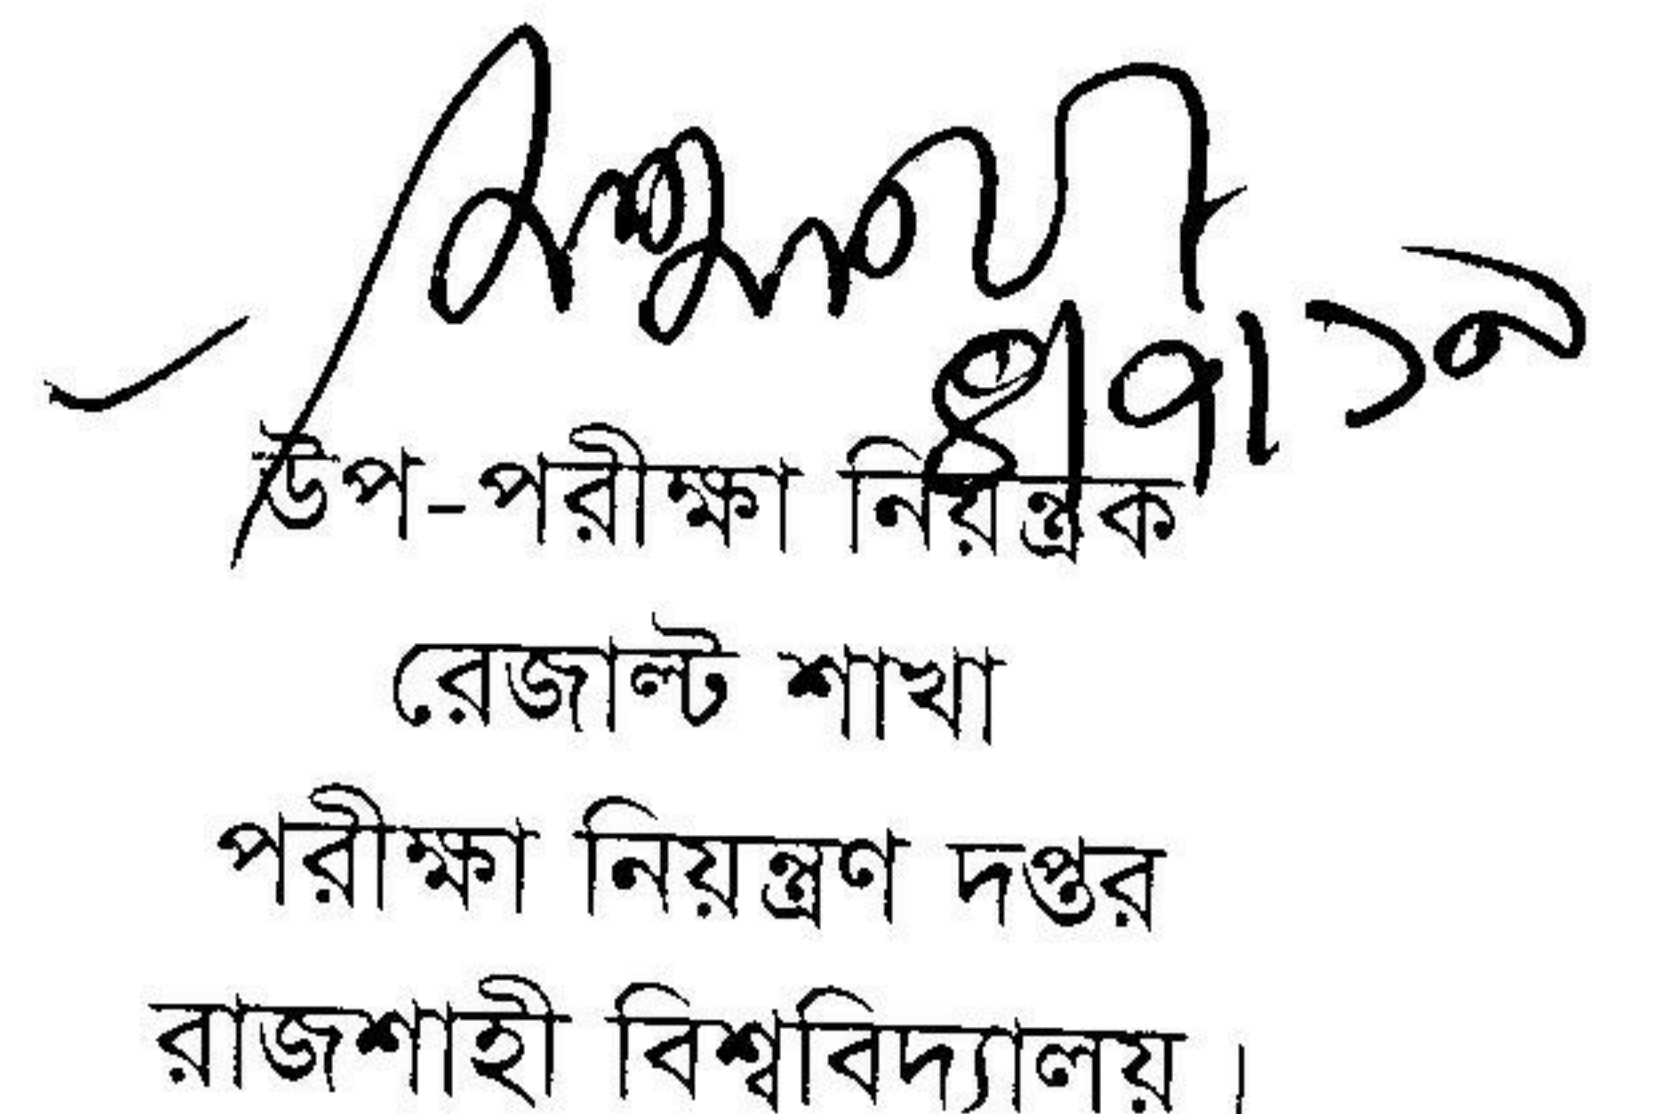 উপ-পরীক্ষা নিয়ন্ত্রক
রেজাল্ট শাখা
পরীক্ষা নিয়ন্ত্রণ দপ্তর
রাজশাহী বিশ্ববিদ্যালয়।